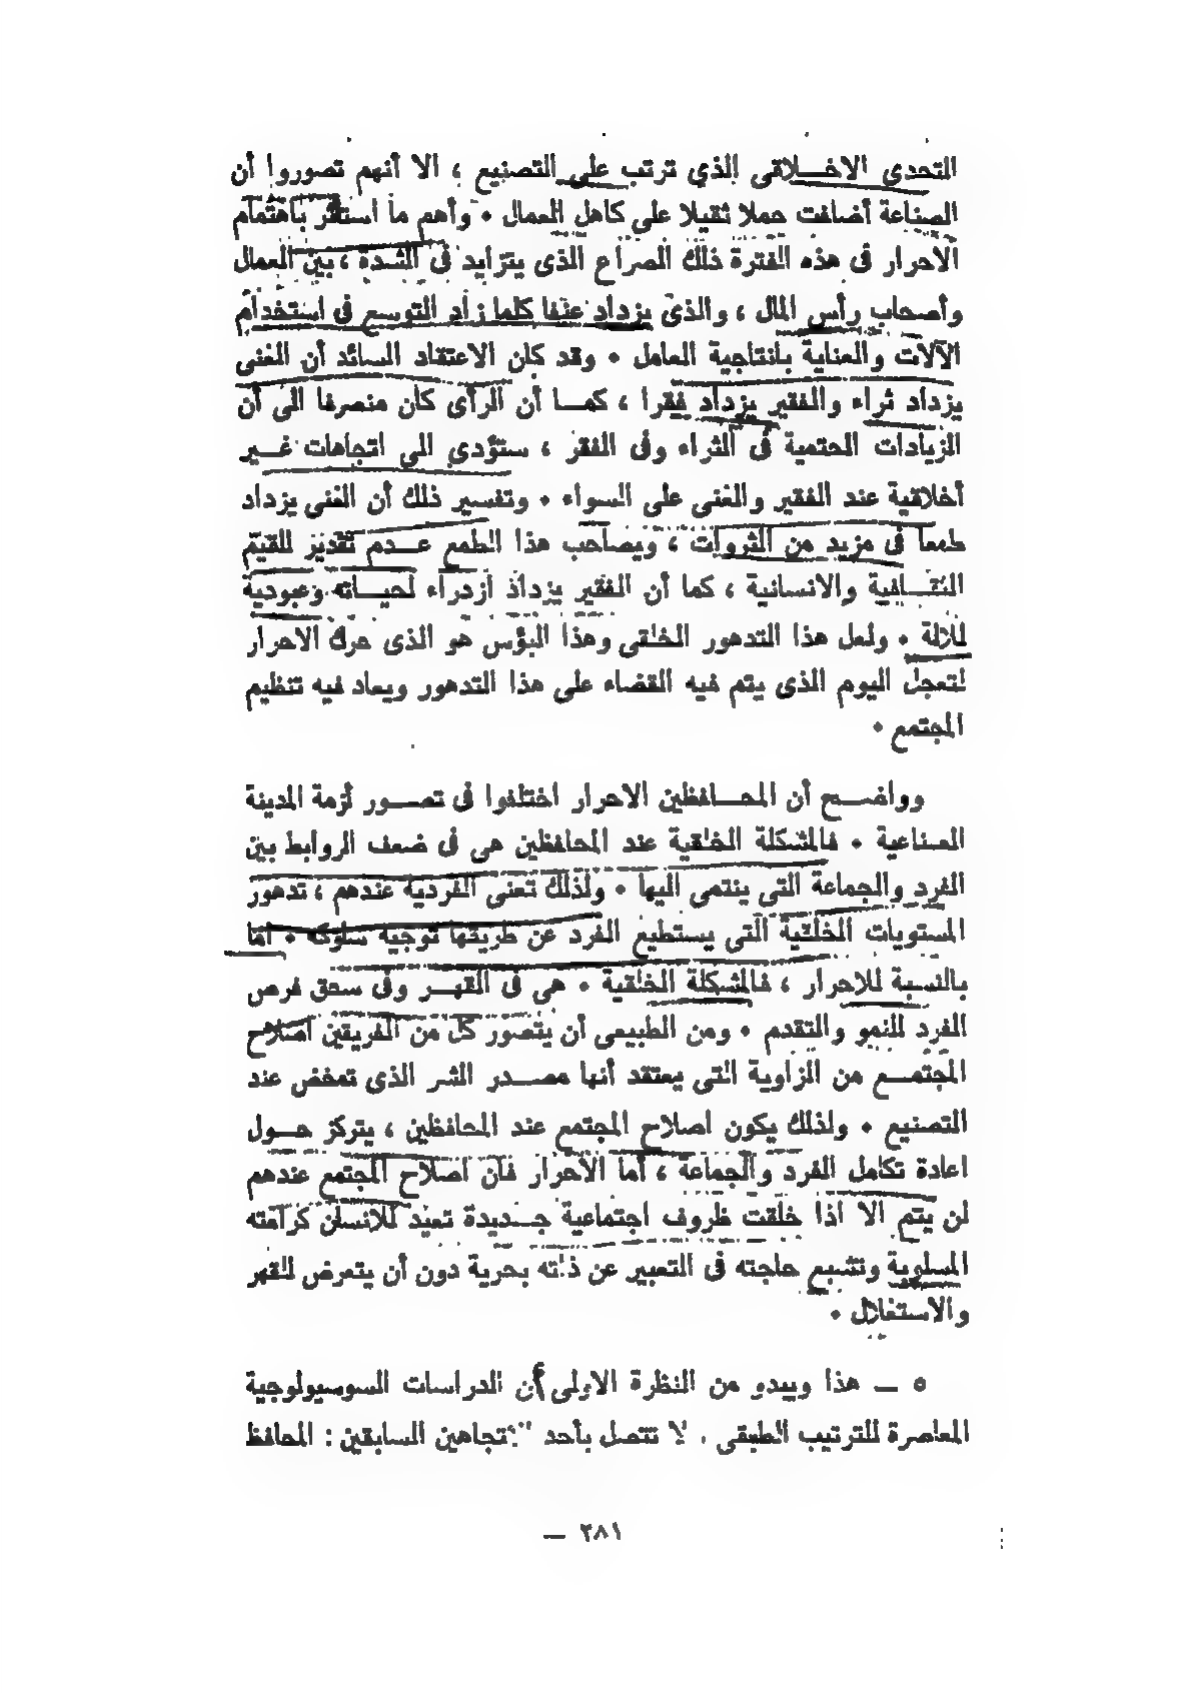 التحدى الاخلاقى الذي ترتب على التصنيع ، الا أنهم تصوروا أن
الصناعة أضافت حملا ثقيلا على كاهل العمال . وأهم ما استأثر باهتمام
الاحرار فى هذه الفترة ذلك الصراع الذى يتزايد فى الشدة ، بين العمال
وأصحاب رأس المال ، والذى يزداد عنفا كلما زاد التوسع فى استخدام
الآلات والعناية بانتاجية العامل . وقد كان الاعتقاد السائد أن الغنى
يزداد ثراء والفقير يزداد فقرا ، كما أن الرأى كان منصرفا الى أن
الزيادات الحتمية فى الثراء وفى الفقر ، ستؤدى الى اتجاهات غير
أخلاقية عند الفقير والغنى على السواء . وتفسير ذلك أن الغنى يزداد
طمعا فى مزيد من الثروات ، ويصاحب هذا الطمع عدم تقدير للقيم
الثقافية والانسانية ، كما أن الفقير يزداد ازدراء لحياته وعبودية
للآلة . ولعل هذا التدهور الخلقى وهذا البؤس هو الذى حرك الاحرار
لتعجل اليوم الذى يتم فيه القضاء على هذا التدهور ويعاد فيه تنظيم
المجتمع .
وواضح أن المحافظين الاحرار اختلفوا فى تصور أزمة المدينة
الصناعية . فالمشكلة الخلقية عند المحافظين هى فى ضعف الروابط بين
الفرد والجماعة التى ينتمى اليها . ولذلك تعنى الفردية عندهم ، تدهور
المستويات الخلقية التى يستطيع الفرد عن طريقها توجيه سلوكه . أما
بالنسبة للاحرار ، فالمشكلة الخلقية . هى فى القهر وفى سحق فرص
الفرد للنمو والتقدم . ومن الطبيعى أن يتصور كل من الفريقين اصلاح
المجتمع من الزاوية التى يعتقد أنها مصدر الشر الذى تمخض عند
التصنيع . ولذلك يكون اصلاح المجتمع عند المحافظين ، يتركز حول
اعادة تكامل الفرد والجماعة ، أما الأحرار فان اصلاح المجتمع عندهم
لن يتم الا اذا خلقت ظروف اجتماعية جديدة تعيد للانسان كرامته
المسلوبة وتشبع حاجته فى التعبير عن ذاته بحرية دون أن يتعرض للقهر
والاستغلال .
٥ — هذا ويبدو من النظرة الاولى أن الدراسات السوسيولوجية
المعاصرة للترتيب الطبقى . لا تتصل بأحد الاتجاهين السابقين : المحافظ
٢٨١ —